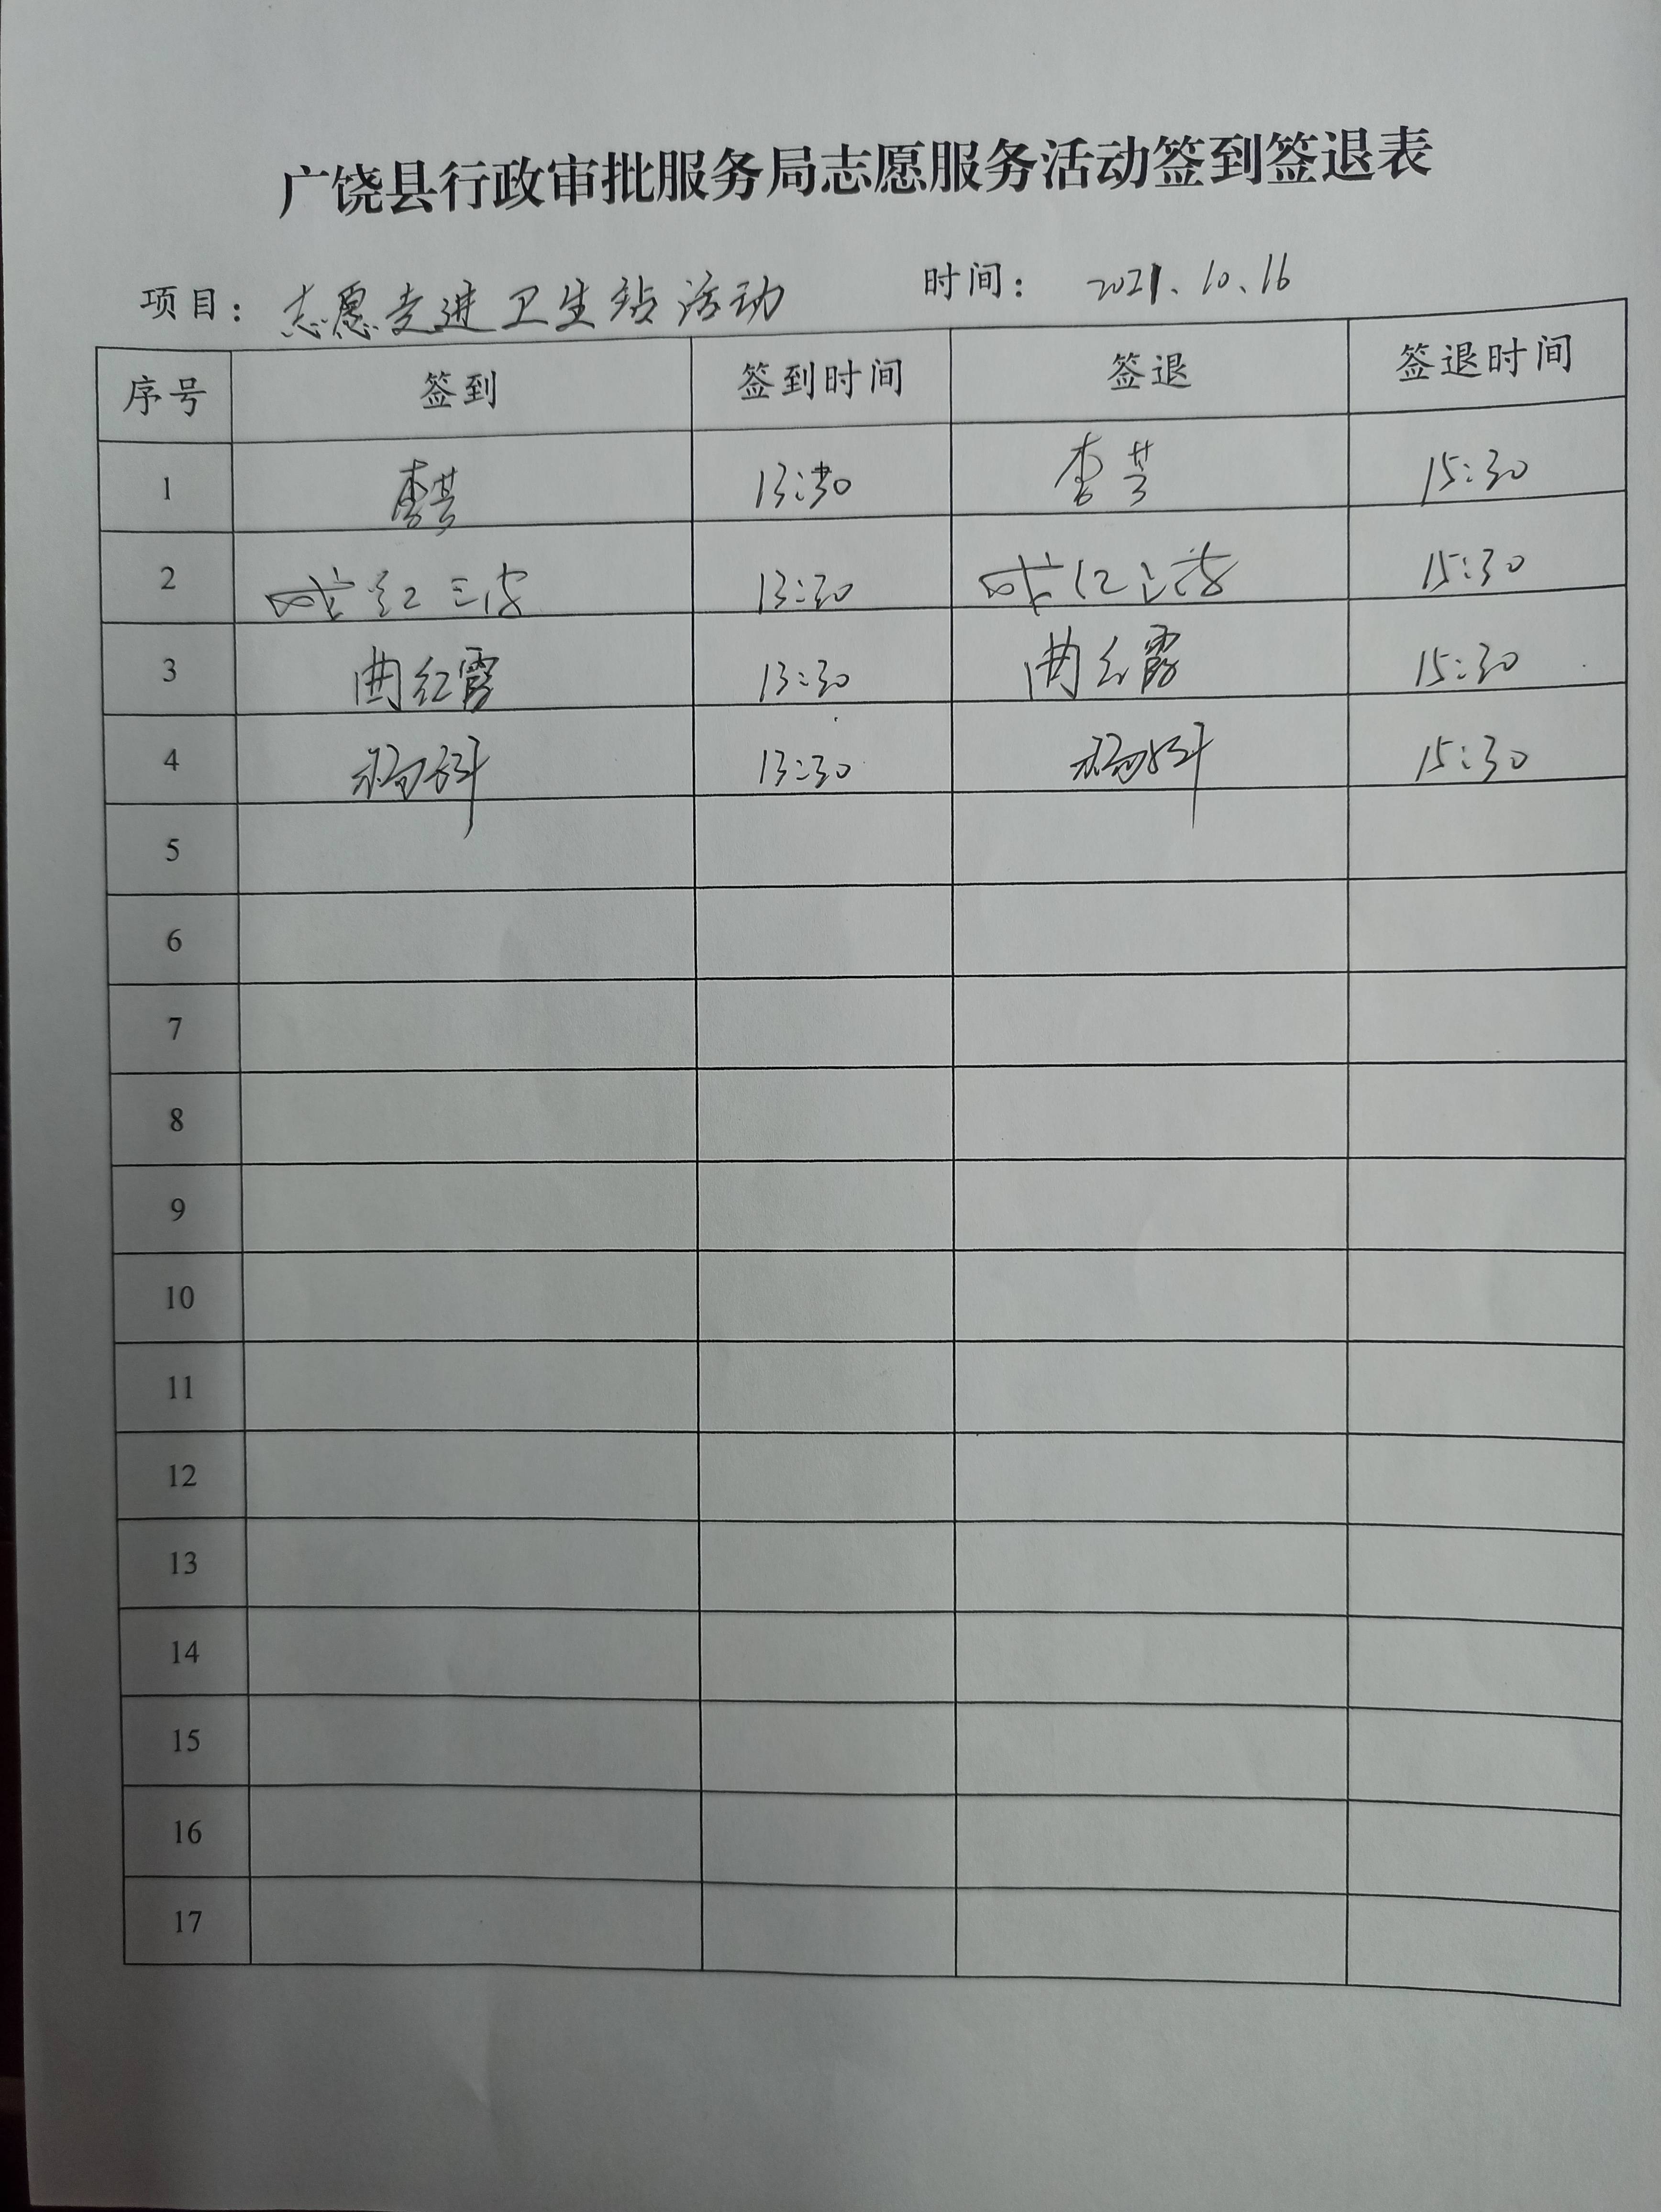 广饶县行政审批服务局志愿服务活动签到签退表
项目：志愿走进卫生站活动 时间：2021.10.16
序号 签到 签到时间 签退 签退时间
1 李芸 13:30 李芸 15:30
2 红 13:30 红 15:30
3 曲红霞 13:30 曲红霞 15:30
4 杨 13:30 杨 15:30
5
6
7
8
9
10
11
12
13
14
15
16
17